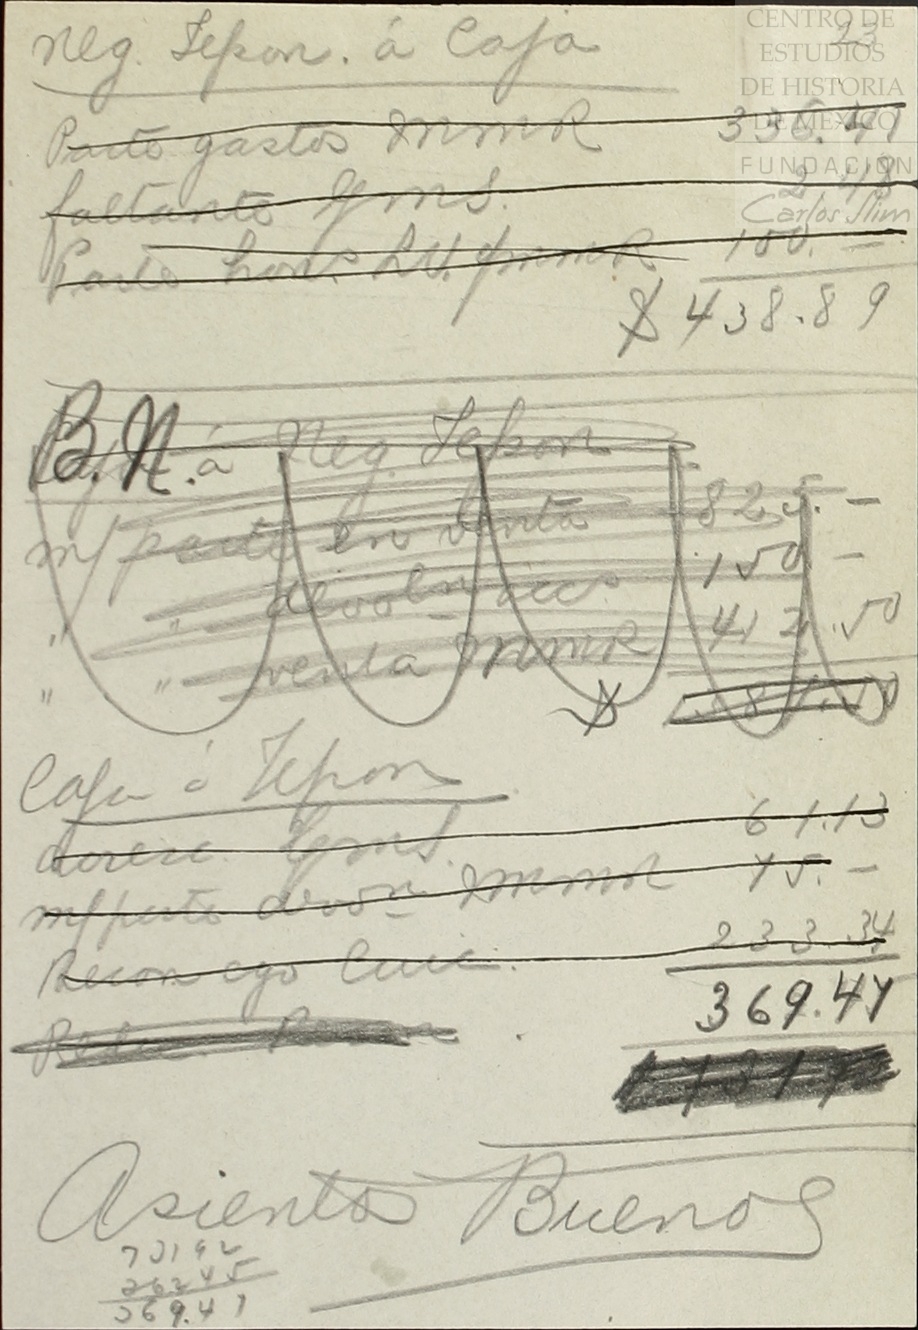 Neg. Tepon. á Caja
23
CENTRO DE
ESTUDIOS
DE HISTORIA
DE MÉXICO
FUNDACIÓN
Carlos Slim
Parte gastos MMR 336.41
faltante GMS. 2.48
Parte hon. MMR 100.—
$ 438.89
B.N. á Neg. Tepon
m/ parte en venta 825.—
" " devolu 150 —
" " venta MMR 412.50
$
Caja á Tepon
GMS. 61.13
m/parte devon MMR 75.—
233.34
369.47
Asientos Buenos
369.47